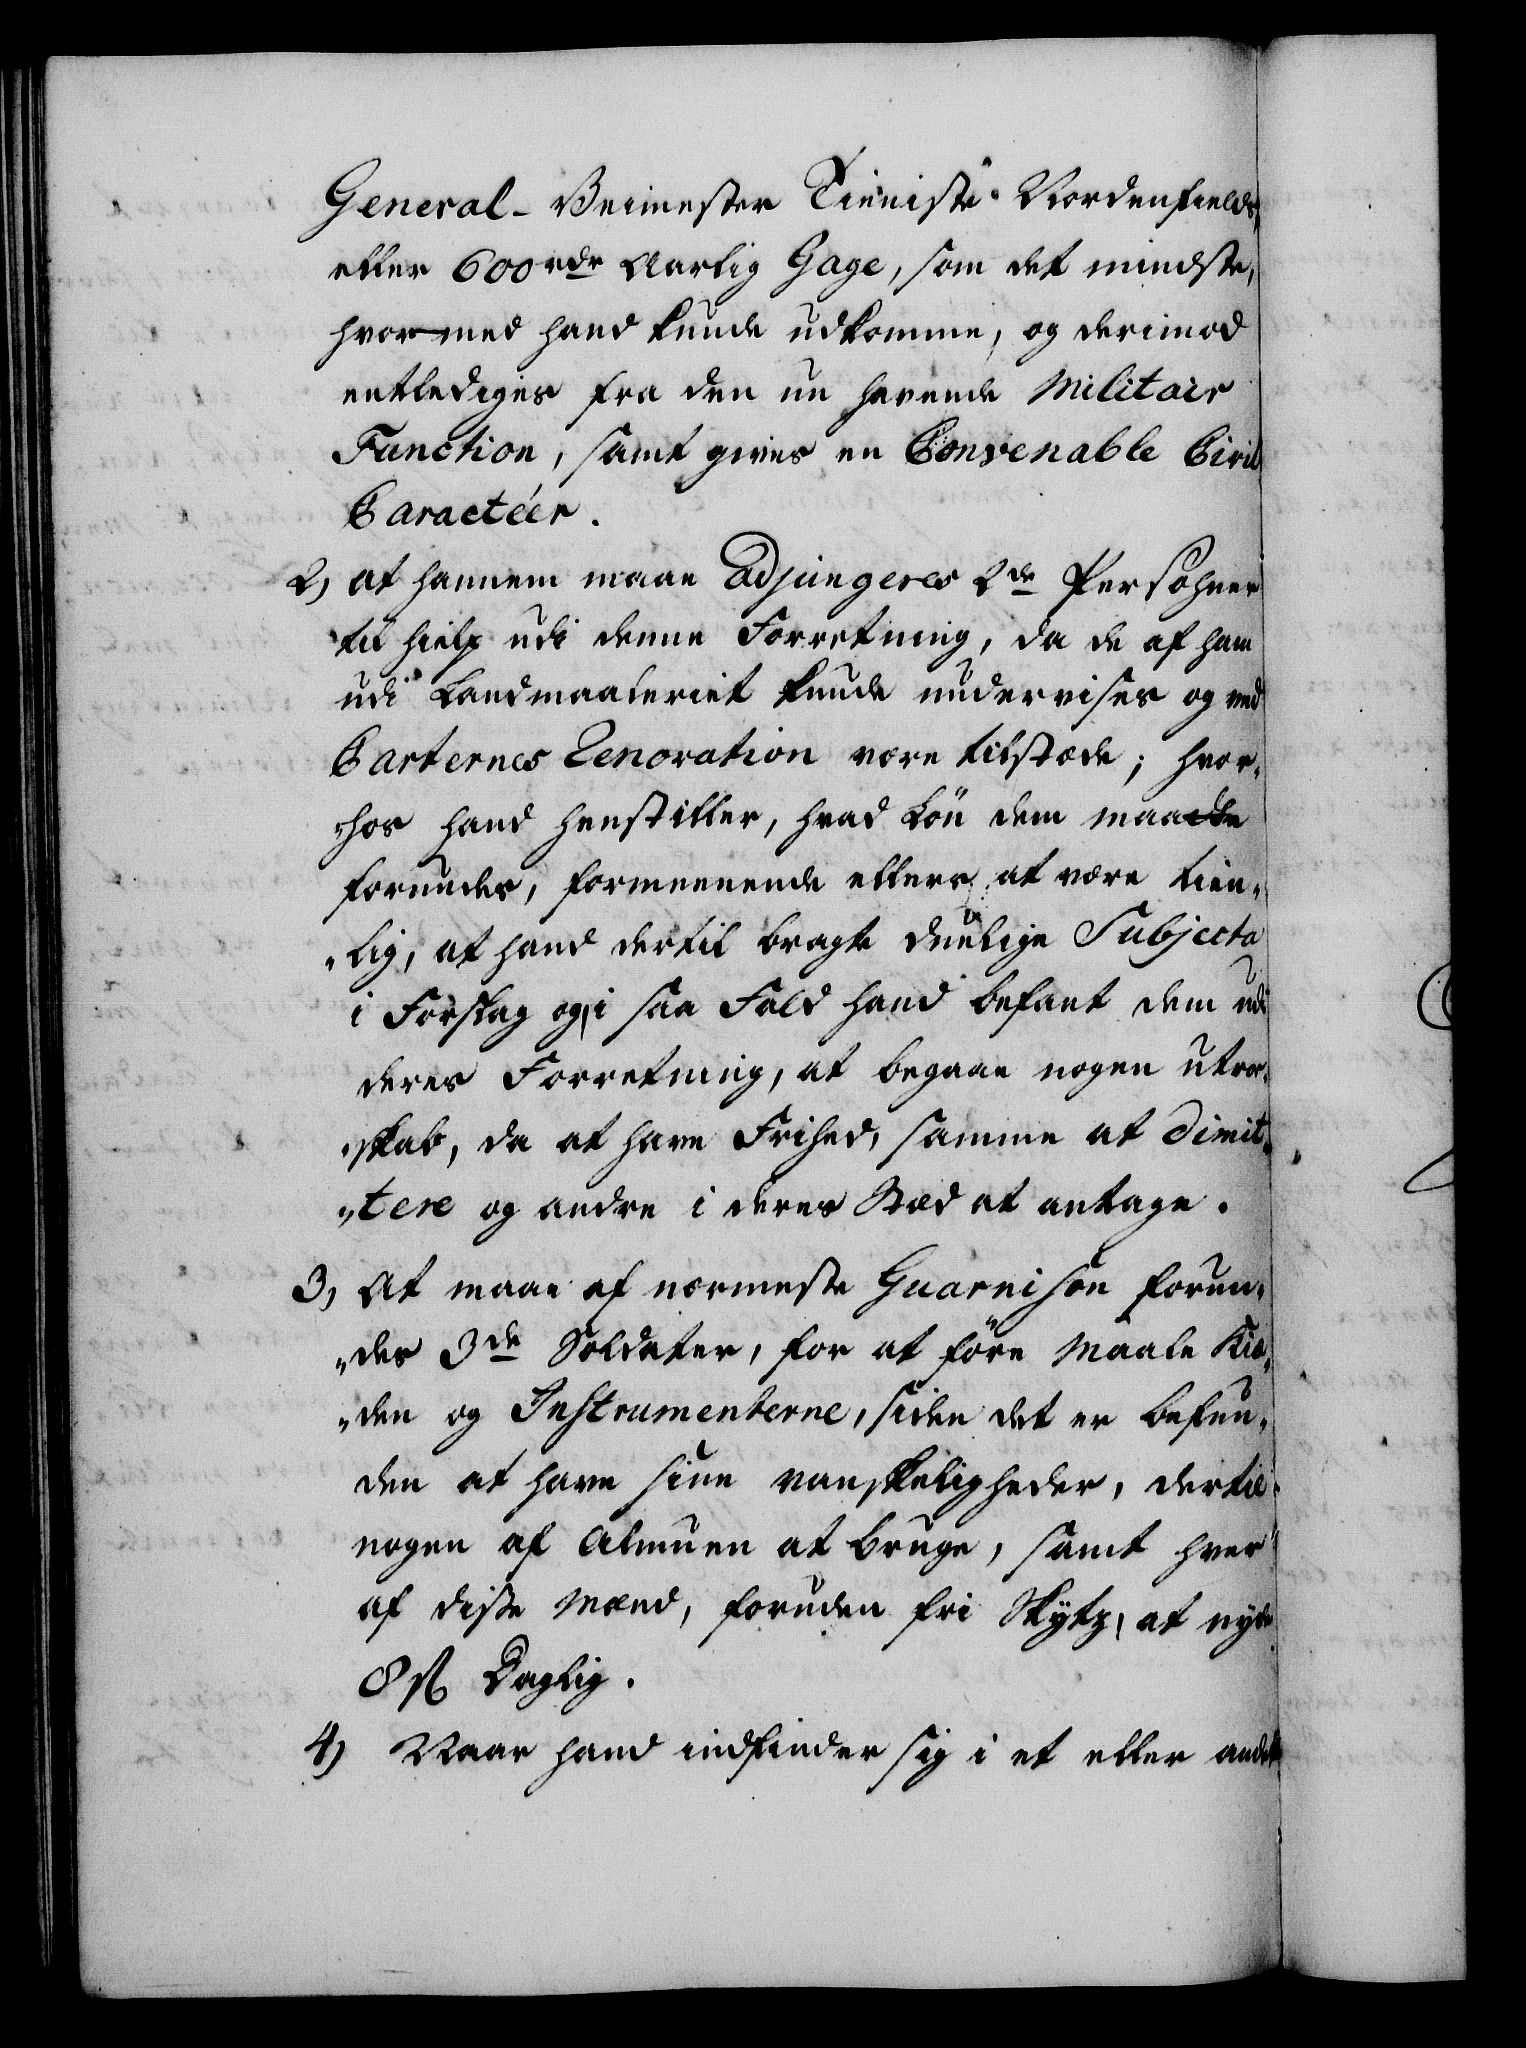 General-Veimester Tieniste Nordenfields,
eller 600 rdr Aarlig Gage, som det mindste,
hvormed hand kunde udkomme, og derimod
entlediges fra den nu havende Militair
Function, samt gives en Convenable Civil
Caractéer.
2) at hannem maae Adjungeres 2de Persohner
til hielp udi denne Forretning, da de af ham
udi Landmaaleriet kunde undervises og ved
Carternes Renovation være tilstæde; hvor-
hos hand henstiller, hvad Lön dem maatte
forundes, formeenende ellers at være tien-
lig, at hand dertil bragte duelige Subjecta
i Forslag og, i saa Fald hand befant dem udi
deres Forretning, at begaae nogen utroe-
skab, da at have Frihed, samme at dimit-
tere og andre i deres Stæd at antage.
3) At maae af nærmeste Guarnison forun-
des 3de Soldater, for at före Maale Kiæ-
den og Instrumenterne, siden det er befun-
den at have sine vanskeligheder, dertil
nogen af Almuen at bruge, samt hver
af disse Mænd, foruden fri Skytz, at nyde
8 sk Daglig.
4) Naar hand indfinder sig i et eller andet